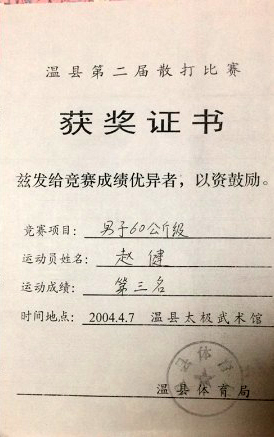 温县第二届散打比赛
获奖证书
兹发给竞赛成绩优异者，以资鼓励。
竞赛项目： 男子60公斤级
运动员姓名： 赵健
运动成绩： 第三名
时间地点： 2004.4.7 温县太极武术馆
温县体育局